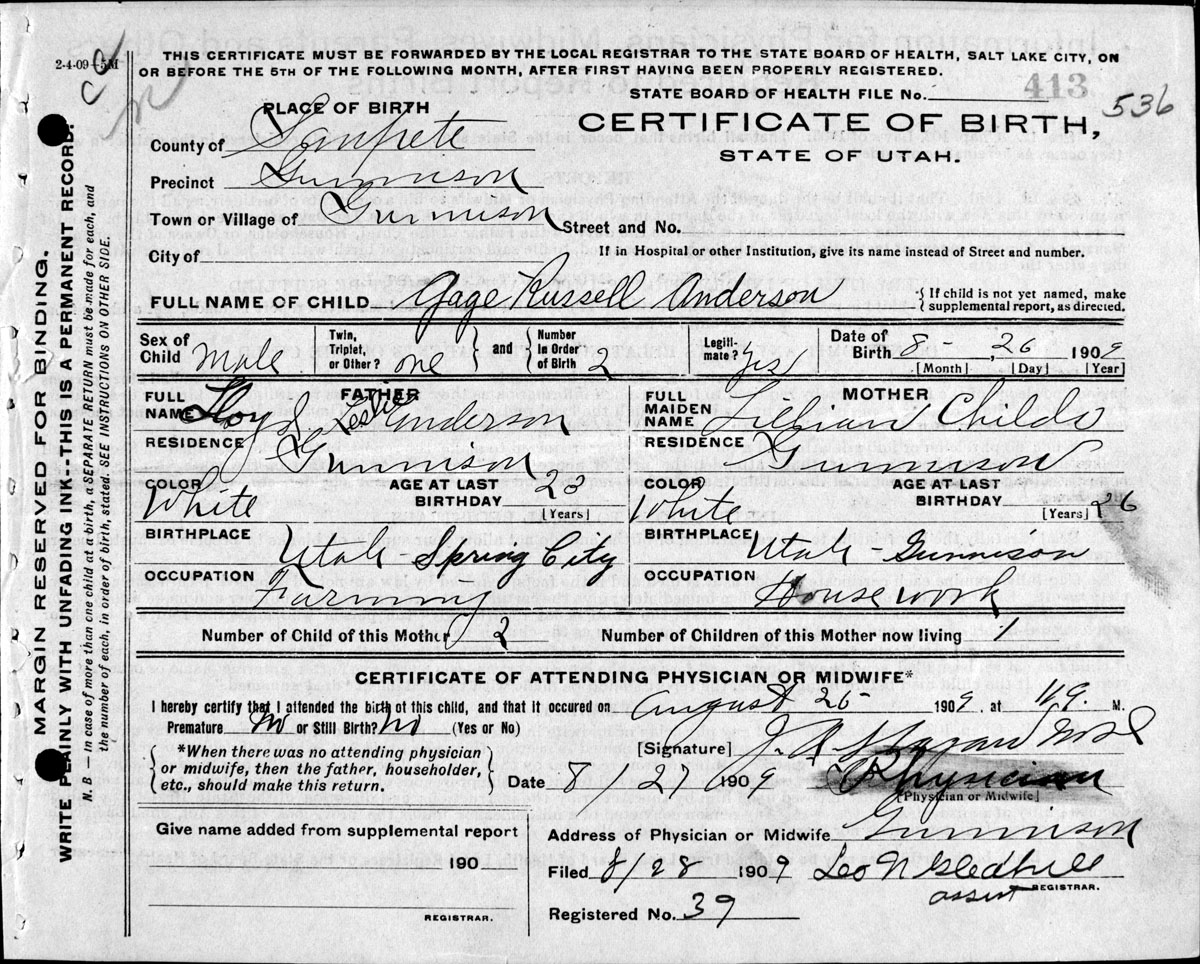 2-4-09-5M
THIS CERTIFICATE MUST BE FORWARDED BY THE LOCAL REGISTRAR TO THE STATE BOARD OF HEALTH, SALT LAKE CITY, ON
OR BEFORE THE 5TH OF THE FOLLOWING MONTH, AFTER FIRST HAVING BEEN PROPERLY REGISTERED.
STATE BOARD OF HEALTH FILE No. 413 536
PLACE OF BIRTH
CERTIFICATE OF BIRTH,
STATE OF UTAH.
County of Sanpete
Precinct Gunnison
Town or Village of Gunnison Street and No.
City of If in Hospital or other Institution, give its name instead of Street and number.
FULL NAME OF CHILD Gage Russell Anderson { If child is not yet named, make
supplemental report, as directed.
Sex of Child Male Twin, Triplet, or Other? one and Number In Order of Birth 2 Legitimate? Yes Date of Birth 8- , 26 1909
[Month] [Day] [Year]
FATHER MOTHER
FULL NAME Leslie Anderson FULL MAIDEN NAME Lillian Childs
RESIDENCE Gunnison RESIDENCE Gunnison
COLOR White AGE AT LAST BIRTHDAY 23 [Years] COLOR White AGE AT LAST BIRTHDAY [Years] 26
BIRTHPLACE Utah - Spring City BIRTHPLACE Utah - Gunnison
OCCUPATION Farming OCCUPATION House work
Number of Child of this Mother 2 Number of Children of this Mother now living 1
CERTIFICATE OF ATTENDING PHYSICIAN OR MIDWIFE*
I hereby certify that I attended the birth of this child, and that it occured on August 26 1909, at M.
Premature No or Still Birth? No (Yes or No)
*When there was no attending physician
or midwife, then the father, householder,
etc., should make this return.
[Signature] J. A. Hagan
Date 8/27 1909 Physician
[Physician or Midwife]
Give name added from supplemental report
190
REGISTRAR.
Address of Physician or Midwife Gunnison
Filed 8/28 1909 Leo N Gledhill
assist REGISTRAR.
Registered No. 39
MARGIN RESERVED FOR BINDING.
WRITE PLAINLY WITH UNFADING INK--THIS IS A PERMANENT RECORD.
N. B.—In case of more than one child at a birth, a SEPARATE RETURN must be made for each, and
the number of each, in order of birth, stated. SEE INSTRUCTIONS ON OTHER SIDE.